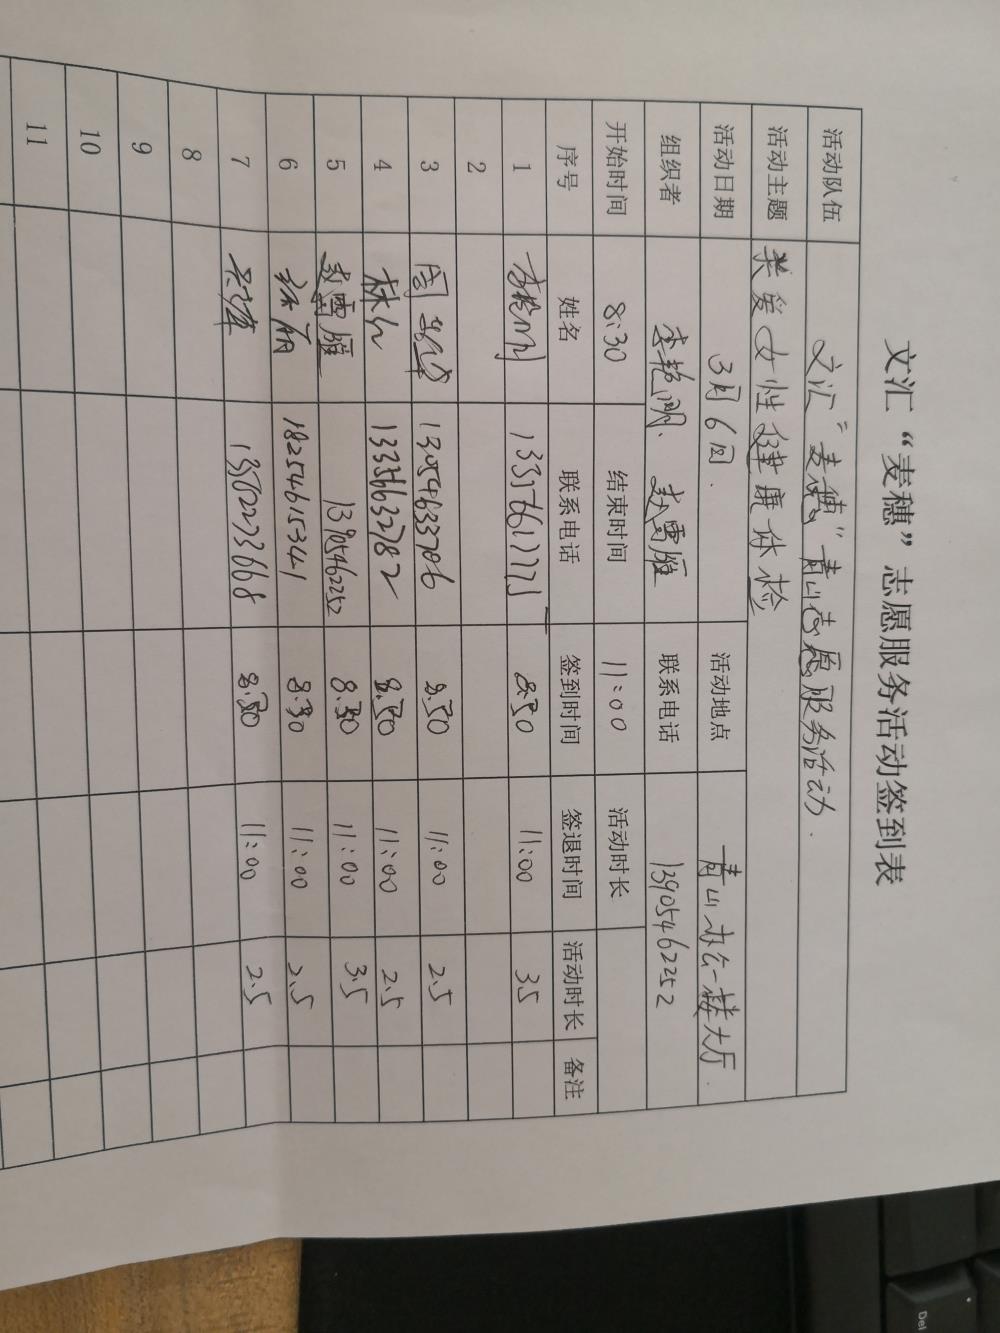 文汇“麦穗”志愿服务活动签到表
活动队伍 文汇“麦穗”青山志愿服务活动.
活动主题 关爱女性健康体检
活动日期 3月6日. 活动地点 青山办公一楼大厅.
组织者 李艳明、赵雪雁 联系电话 13905462252
开始时间 8:30 结束时间 11:00 活动时长
序号 姓名 联系电话 签到时间 签退时间 活动时长 备注
1 8:30 11:00 3.5
2
3 13054633706 8:30 11:00 2.5
4 林仁 13356632782 8:30 11:00 2.5
5 赵雪雁 13905462252 8:30 11:00 3.5
6 18254615341 8:30 11:00 2.5
7 13502223668 8:30 11:00 2.5
8
9
10
11
Del